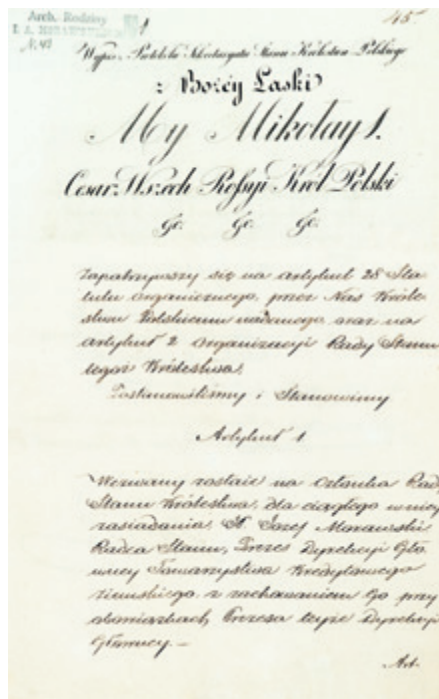 Arch. Rodziny
N. 41
45
Wypis z Protokołu Sekretaryatu Stanu Królestwa Polskiego
z Bożéy Łaski
My Mikołay 1.
Cesarz Wszech Rossyi Król Polski
&c. &c. &c.
Zapatrzywszy się na artykuł 28 Sta
tutu organicznego, przez Nas Króle
stwu Polskiemu nadanego oraz na
artykuł 2 organizacyi Rady Stanu
tegoż Królestwa,
Postanowiliśmy i Stanowimy
Artykuł 1
Wezwany zostaie na Członka Rady
Stanu Królestwa, dla ciągłego w niey
zasiadania, Józef Morawski
Radca Stanu, Prezes Dyrekcyi Głó
wney Towarzystwa Kredytowego
Ziemskiego, z zachowaniem Go przy
obowiązkach Prezesa teyże Dyrekcyi
Głównej. —
Art.